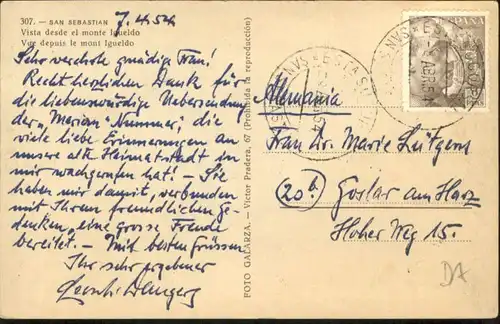 307. — SAN SEBASTIAN
Vista desde el monte Igueldo
Vue depuis le mont Igueldo
7.4.54
Sehr verehrte gnädige Frau!
Recht herzlichen Dank für
die liebenswürdige Uebersendung
der „Merian" Nummer, die
viele liebe Erinnerungen an
unsere alte Heimatstadt in
mir wachgerufen hat! – Sie
haben mir damit, verbunden
mit Ihren freundlichen Ge-
danken, eine grosse Freude
bereitet. – Mit besten Grüssen
Ihr sehr ergebener
FOTO GALARZA. — Victor Pradera, 67 (Prohibida la reproducción)
ESPAÑA
Alemania
Frau Dr. Marie Lütgens
(20b) Goslar am Harz
Hoher Weg 15.